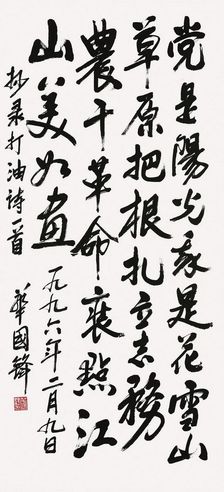 党是陽光我是花雪山
草原把根扎立志務
農干革命裝點江
山美如画
一九九六年二月九日
抄录打油诗一首
華國鋒